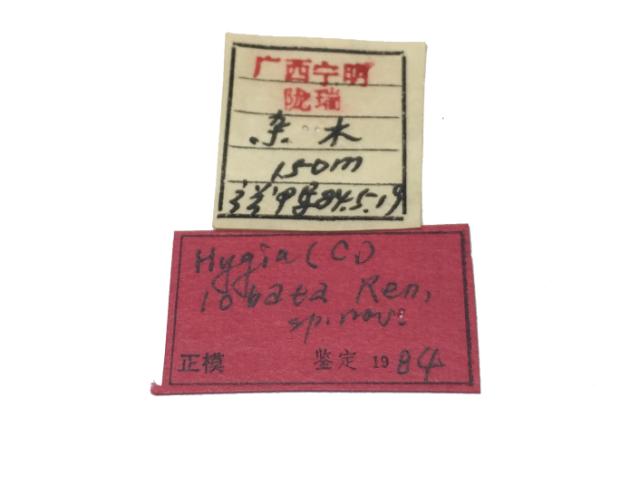 广西宁明
陇瑞
杂木
150m
84.5.19
Hygia (C.)
lobata Ren,
sp. nov.
正模 鉴定 1984